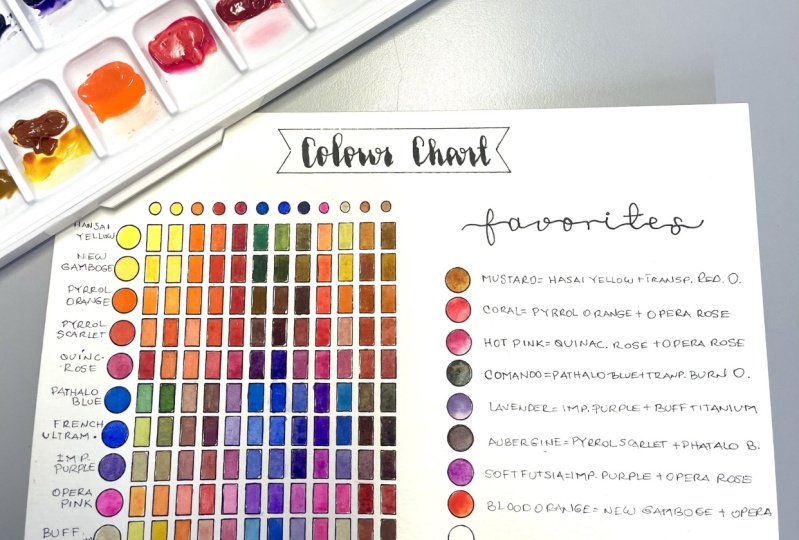 Colour Chart
HANSAI
YELLOW
NEW
GAMBOGE
PYRROL
ORANGE
PYRROL
SCARLET
QUINC.
ROSE
PATHALO
BLUE
FRENCH
ULTRAM.
IMP.
PURPLE
OPERA
PINK
BUFF
favorites
MUSTARD= HASAI YELLOW + TRANSP. RED. O.
CORAL= PYRROL ORANGE + OPERA ROSE
HOT PINK= QUINAC. ROSE + OPERA ROSE
COMANDO= PATHALO BLUE + TRANP. BURN O.
LAVENDER= IMP. PURPLE + BUFF TITANIUM
AUBERGINE= PYRROL SCARLET + PHATALO B.
SOFT FUTSIA= IMP. PURPLE + OPERA ROSE
BLOOD ORANGE= NEW GAMBOGE + OPERA